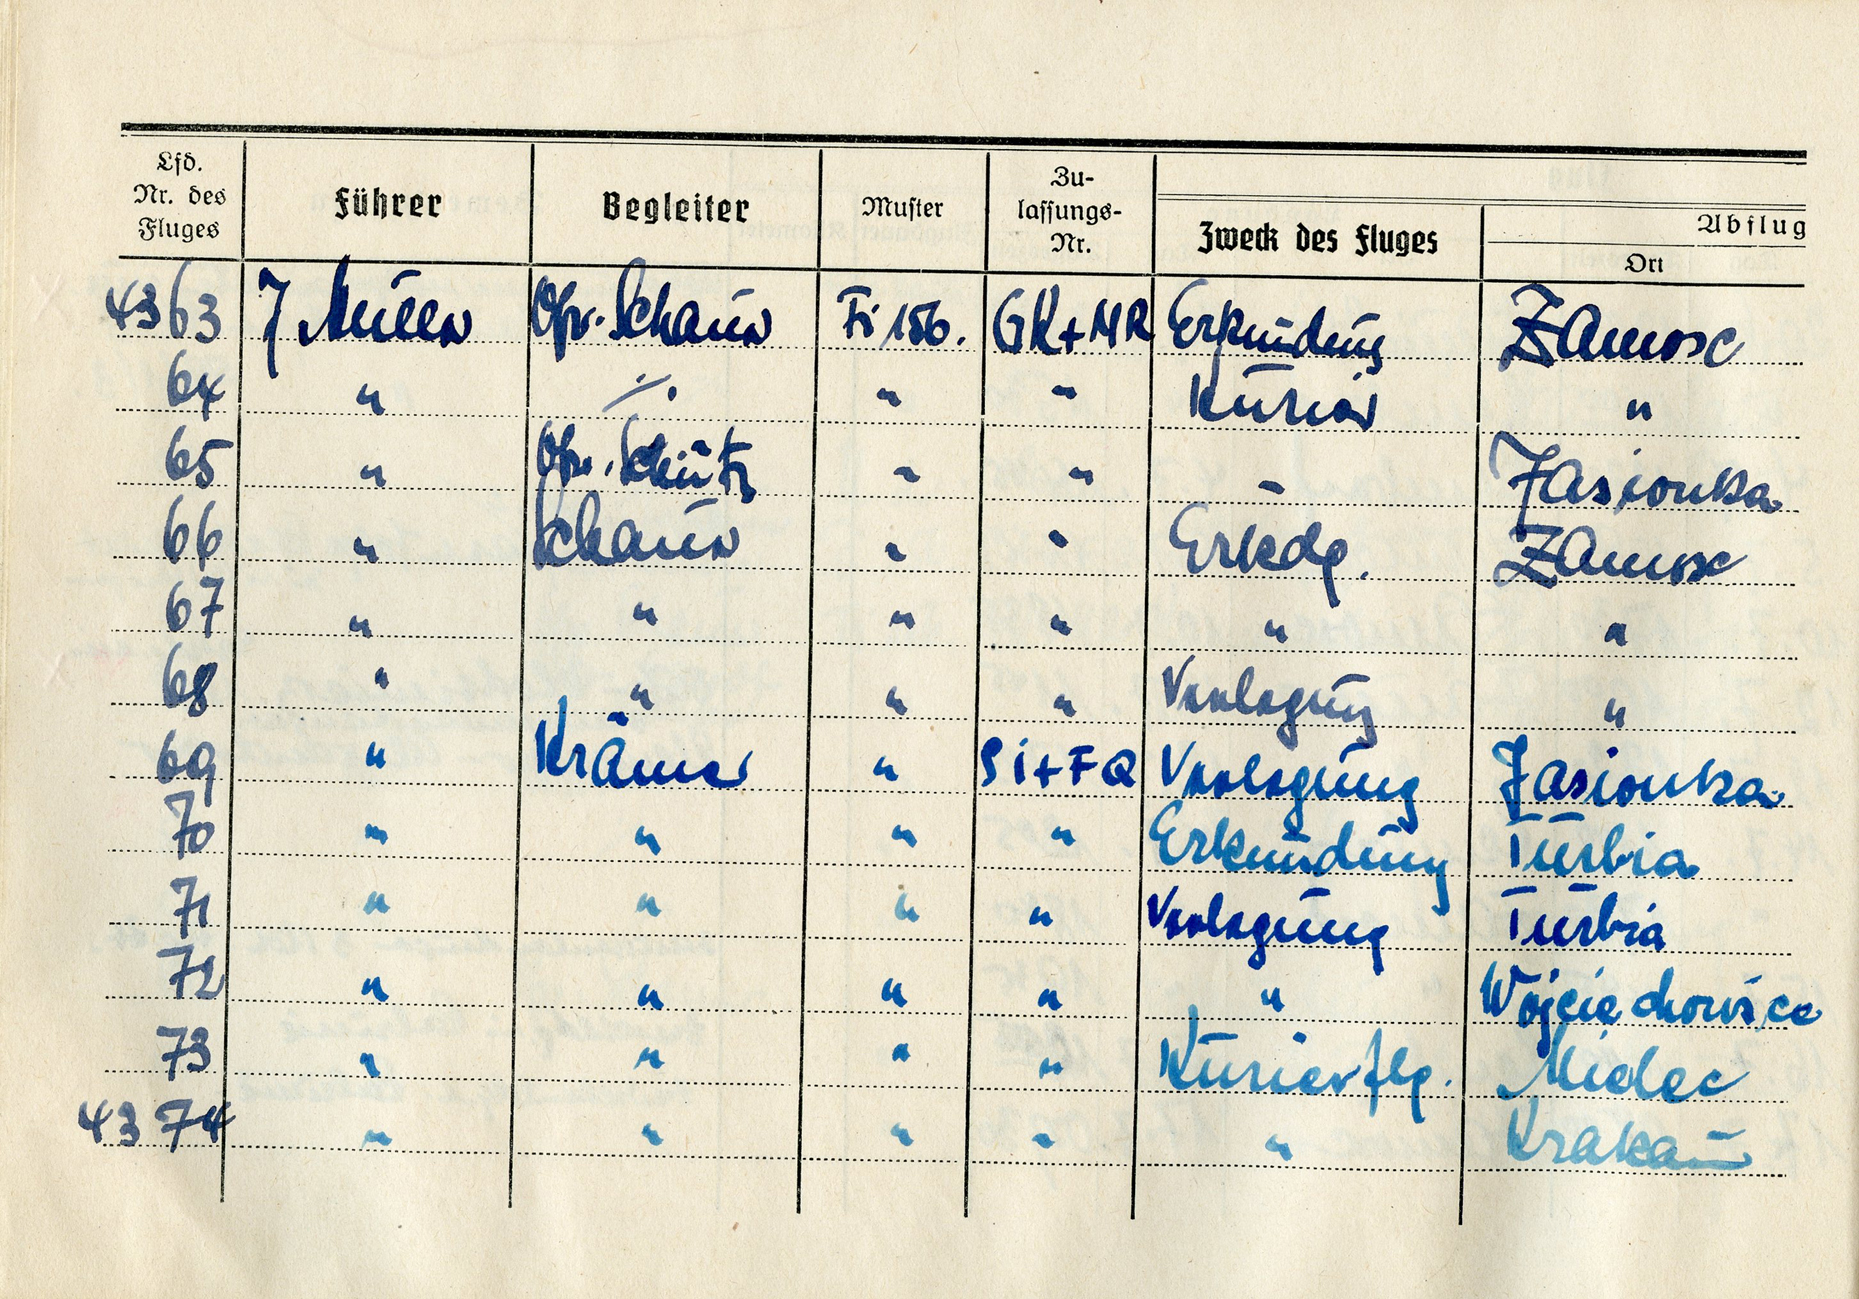 Lfd. Nr. des Fluges Führer Begleiter Muster Zulassungs-Nr. Zweck des Fluges Abflug Ort
4363 J Müller Ofw. Schaur Fi 156. GK+MR Erkundung Zamosc
64 " ·/. " " Kurier "
65 " Ofw. Schütz " " " Jasionka
66 " Schaur " " Erkdg. Zamosc
67 " " " " " "
68 " " " " Verlegung "
69 " Krämer " SI+FQ Verlegung Jasionka
70 " " " " Erkundung Turbia
71 " " " " Verlegung Turbia
72 " " " " " Wojciechowice
73 " " " " Kurierflg. Mielec
4374 " " " " " Krakau